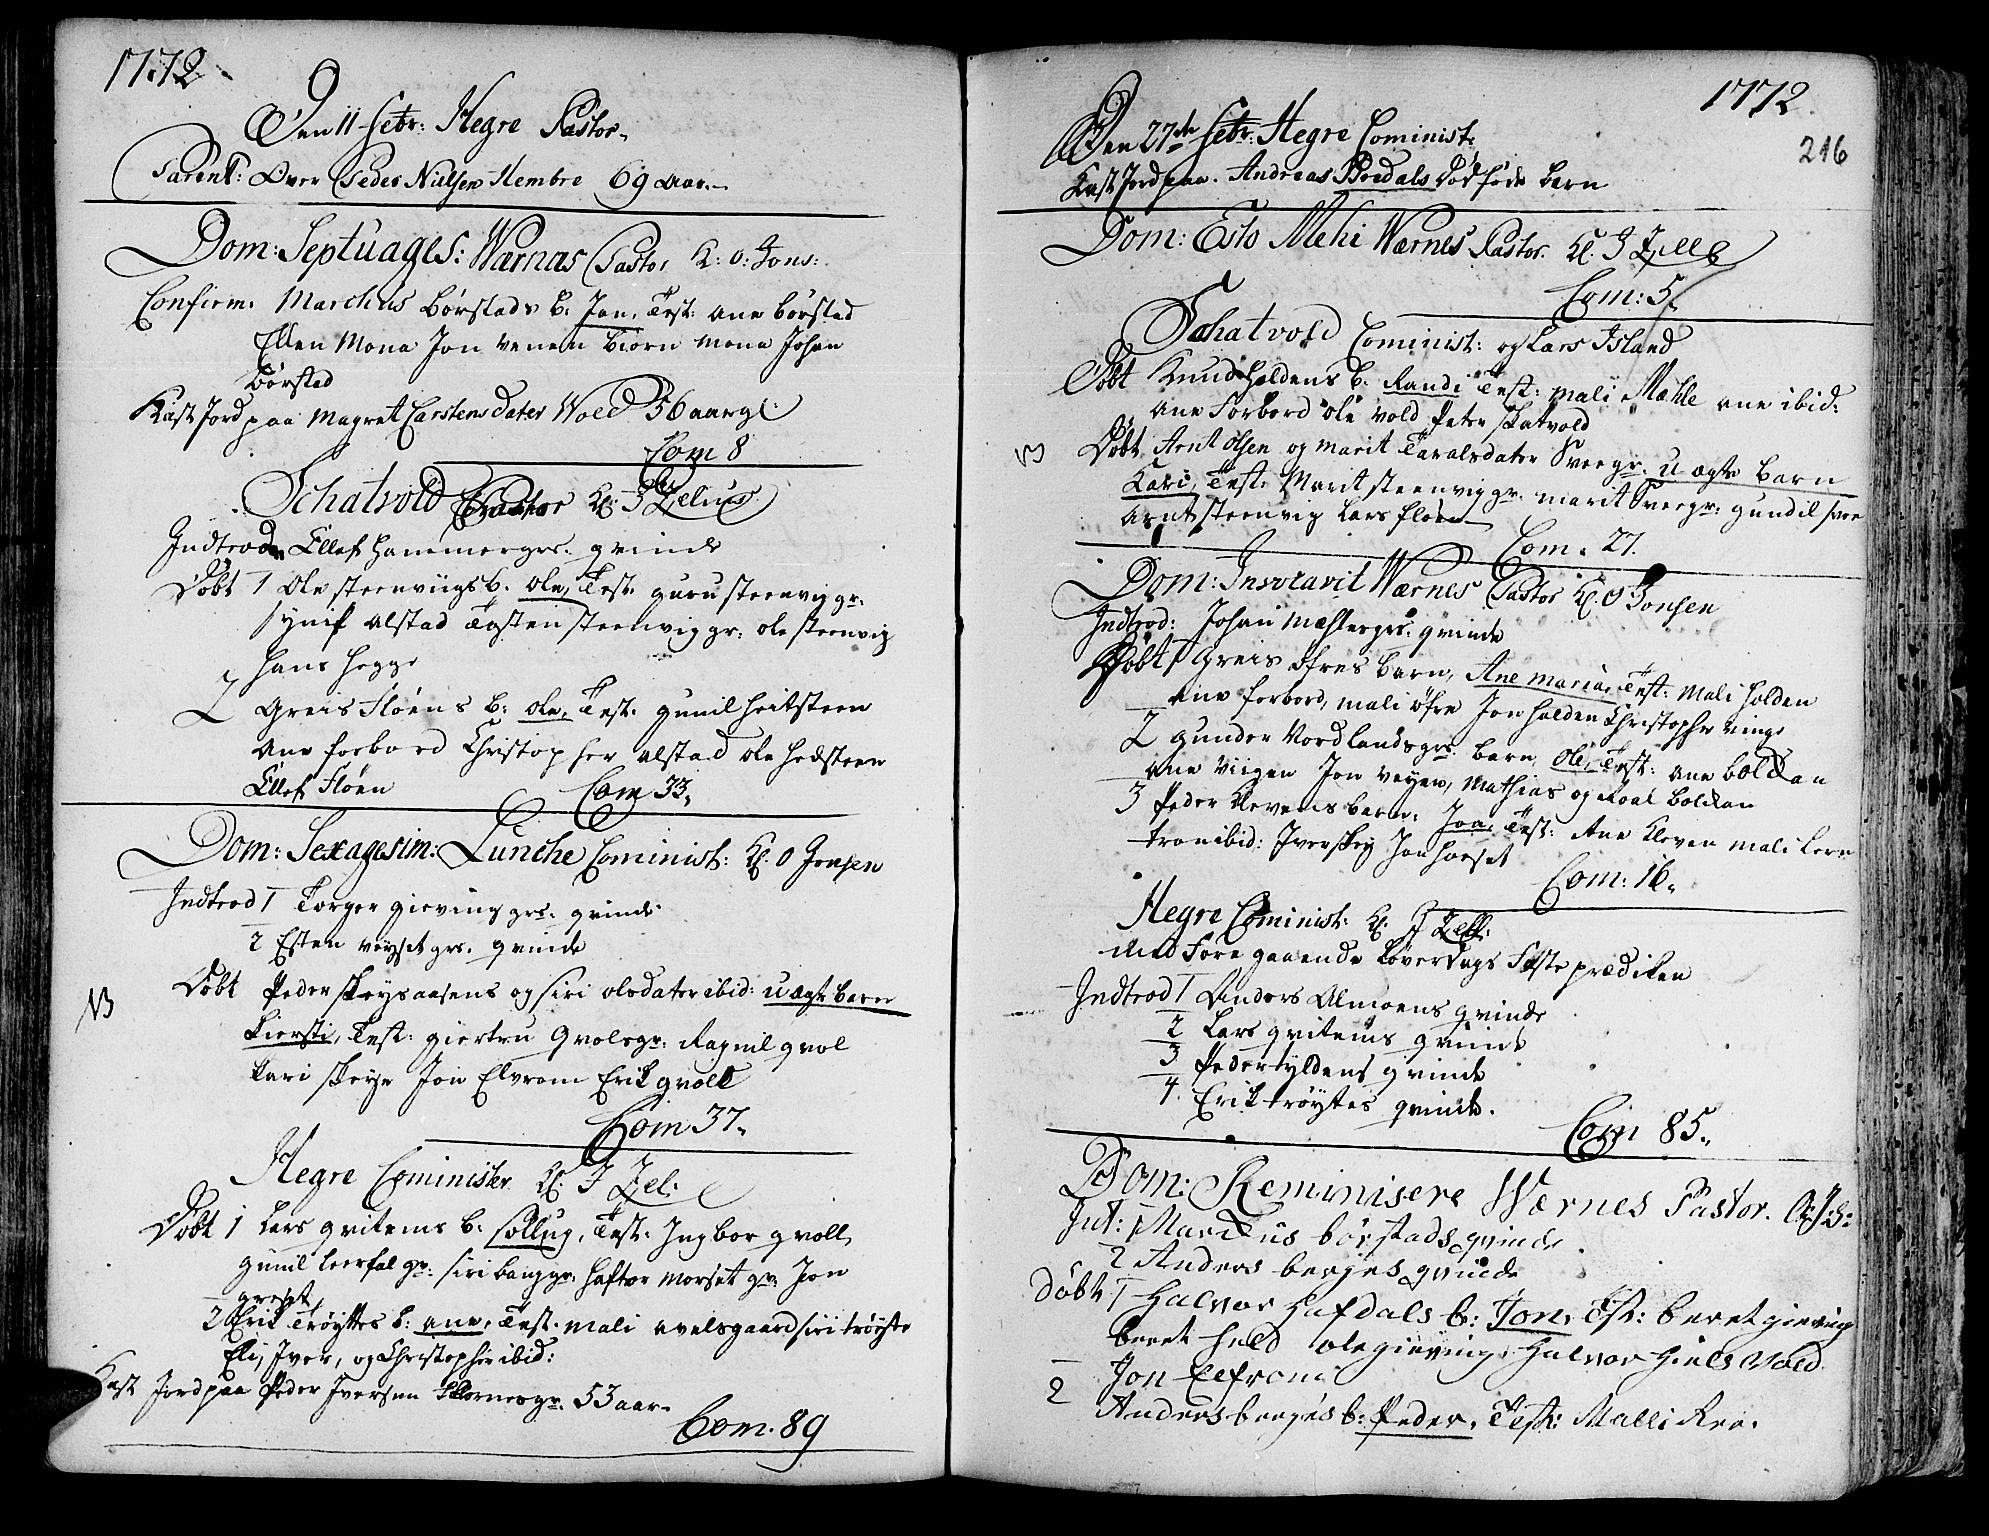 1772
Den 11 Febr: Hegre Pastor
Parent: Over Peder Nielsen Hembre 69 aar.
Dom: Septuages: Wærnæs Pastor K: O: Jons:
Confirm. Marchus Børstads b. Jon, Test: ane børstad
Ellen Mona Jon venem biørn mona Johan
børstad
Kast Jord paa Magret Carstensdater Wold 56 aar gl:
Com 8
Schatvold Pastor Kl: J Zelius
Indtrod Ellef hammergrs. qvinde
Døbt 1 Ole steenviigs b. Ole, Test. guru steenvig gr.
synef alstad Tosten steenvig gr: ole steenvig
hans hegge
2 Greis Fløens b: Ole, Test. gunil heitsteen
ane forbord Christopher alstad ole hedsteen
Ellef Fløen Com 33.
Dom: Sexagesim: Lunche Cominist: Kl: O Jensen
Indtrod 1 Torger gieving grs. qvinde
2 Esten veyset grs. qvinde
Døbt Peder skeysaasens og siri olsdater ibid: uægte barn
NB
Kiersti, Test: giertru Qvolsgr: Ragnil qvol
kari skeye Jon Elvrom Erik qvoll
Com 37.
Hegre Cominister Kl: J Zel:
Døbt 1 Lars qvitems b: sollug, Test. Ingbor qvoll
gunil leerfal gr: siri bang gr. haftor morset gr. Jon
græset
2 Erik Trøyttes b: ane, Test. mali avelsgaard siri trøyte
Eli, Iver, og Christopher ibid:
Kast Jord paa Peder Iversen gr. 53 aar.
Com. 89
1772.
216
Den 27de Febr: Hegre Cominist.
Kast Jord paa. Andreas Bordals dødføde barn
Dom: Esto Mihi Wærnes Pastor. Kl. J Zelle
Com: 5.
Schatvold Cominist: og Lars Island
Døbt Knud holdens b. Randi Test: mali Mæhle ane ibid:
ane Forbord ole vold Peter skatvold
NB
Døbt Arnt olsen og marit Taralsdater Sveegr. uægte barn
Kari, Test. Marit steenvig gr. marit Sveegr: gundil svee
arnt steenvig Lars floen
Com. 27.
Dom: Invocavit Wærnes Pastor Kl. O Jonsen
Indtrod: Johan mæhlesgrs. qvinde
Døbt 1 Greis øfres barn, Ane maria, Test: mali holden
ane forbord, mali øfre Jon holden Christopher vinge
2 gunder Nordlandsgrs. barn, Ole, Test: ane boldan
ane viigen Jon veyen, Mathias og Roal boldan
3 Peder Klevens barn. Jon, Test: Ane Kleven mali leren
tron ibid: Iver skey Jon horset
Com: 16.
Hegre Cominist: Kl. J Zell:
Med Foregaaende Løverdags Fasteprædiken
Indtrod 1 Anders Almoens qvinde
2 Lars qvitems qvinde
3 Peder tyldens qvinde
4. Erik trøytes qvinde.
Com 85.
Dom: Reminisere Wærnes Pastor.
Int: 1 Marcus børstads qvinde
2 Anders berges qvinde
Døbt 1 halvor hafdals b: Jon, Test: beret gieving
beret held ole gieving halvor
Jon Elfrom
2 Anders berges b: Peder, Test: Malli Ree.